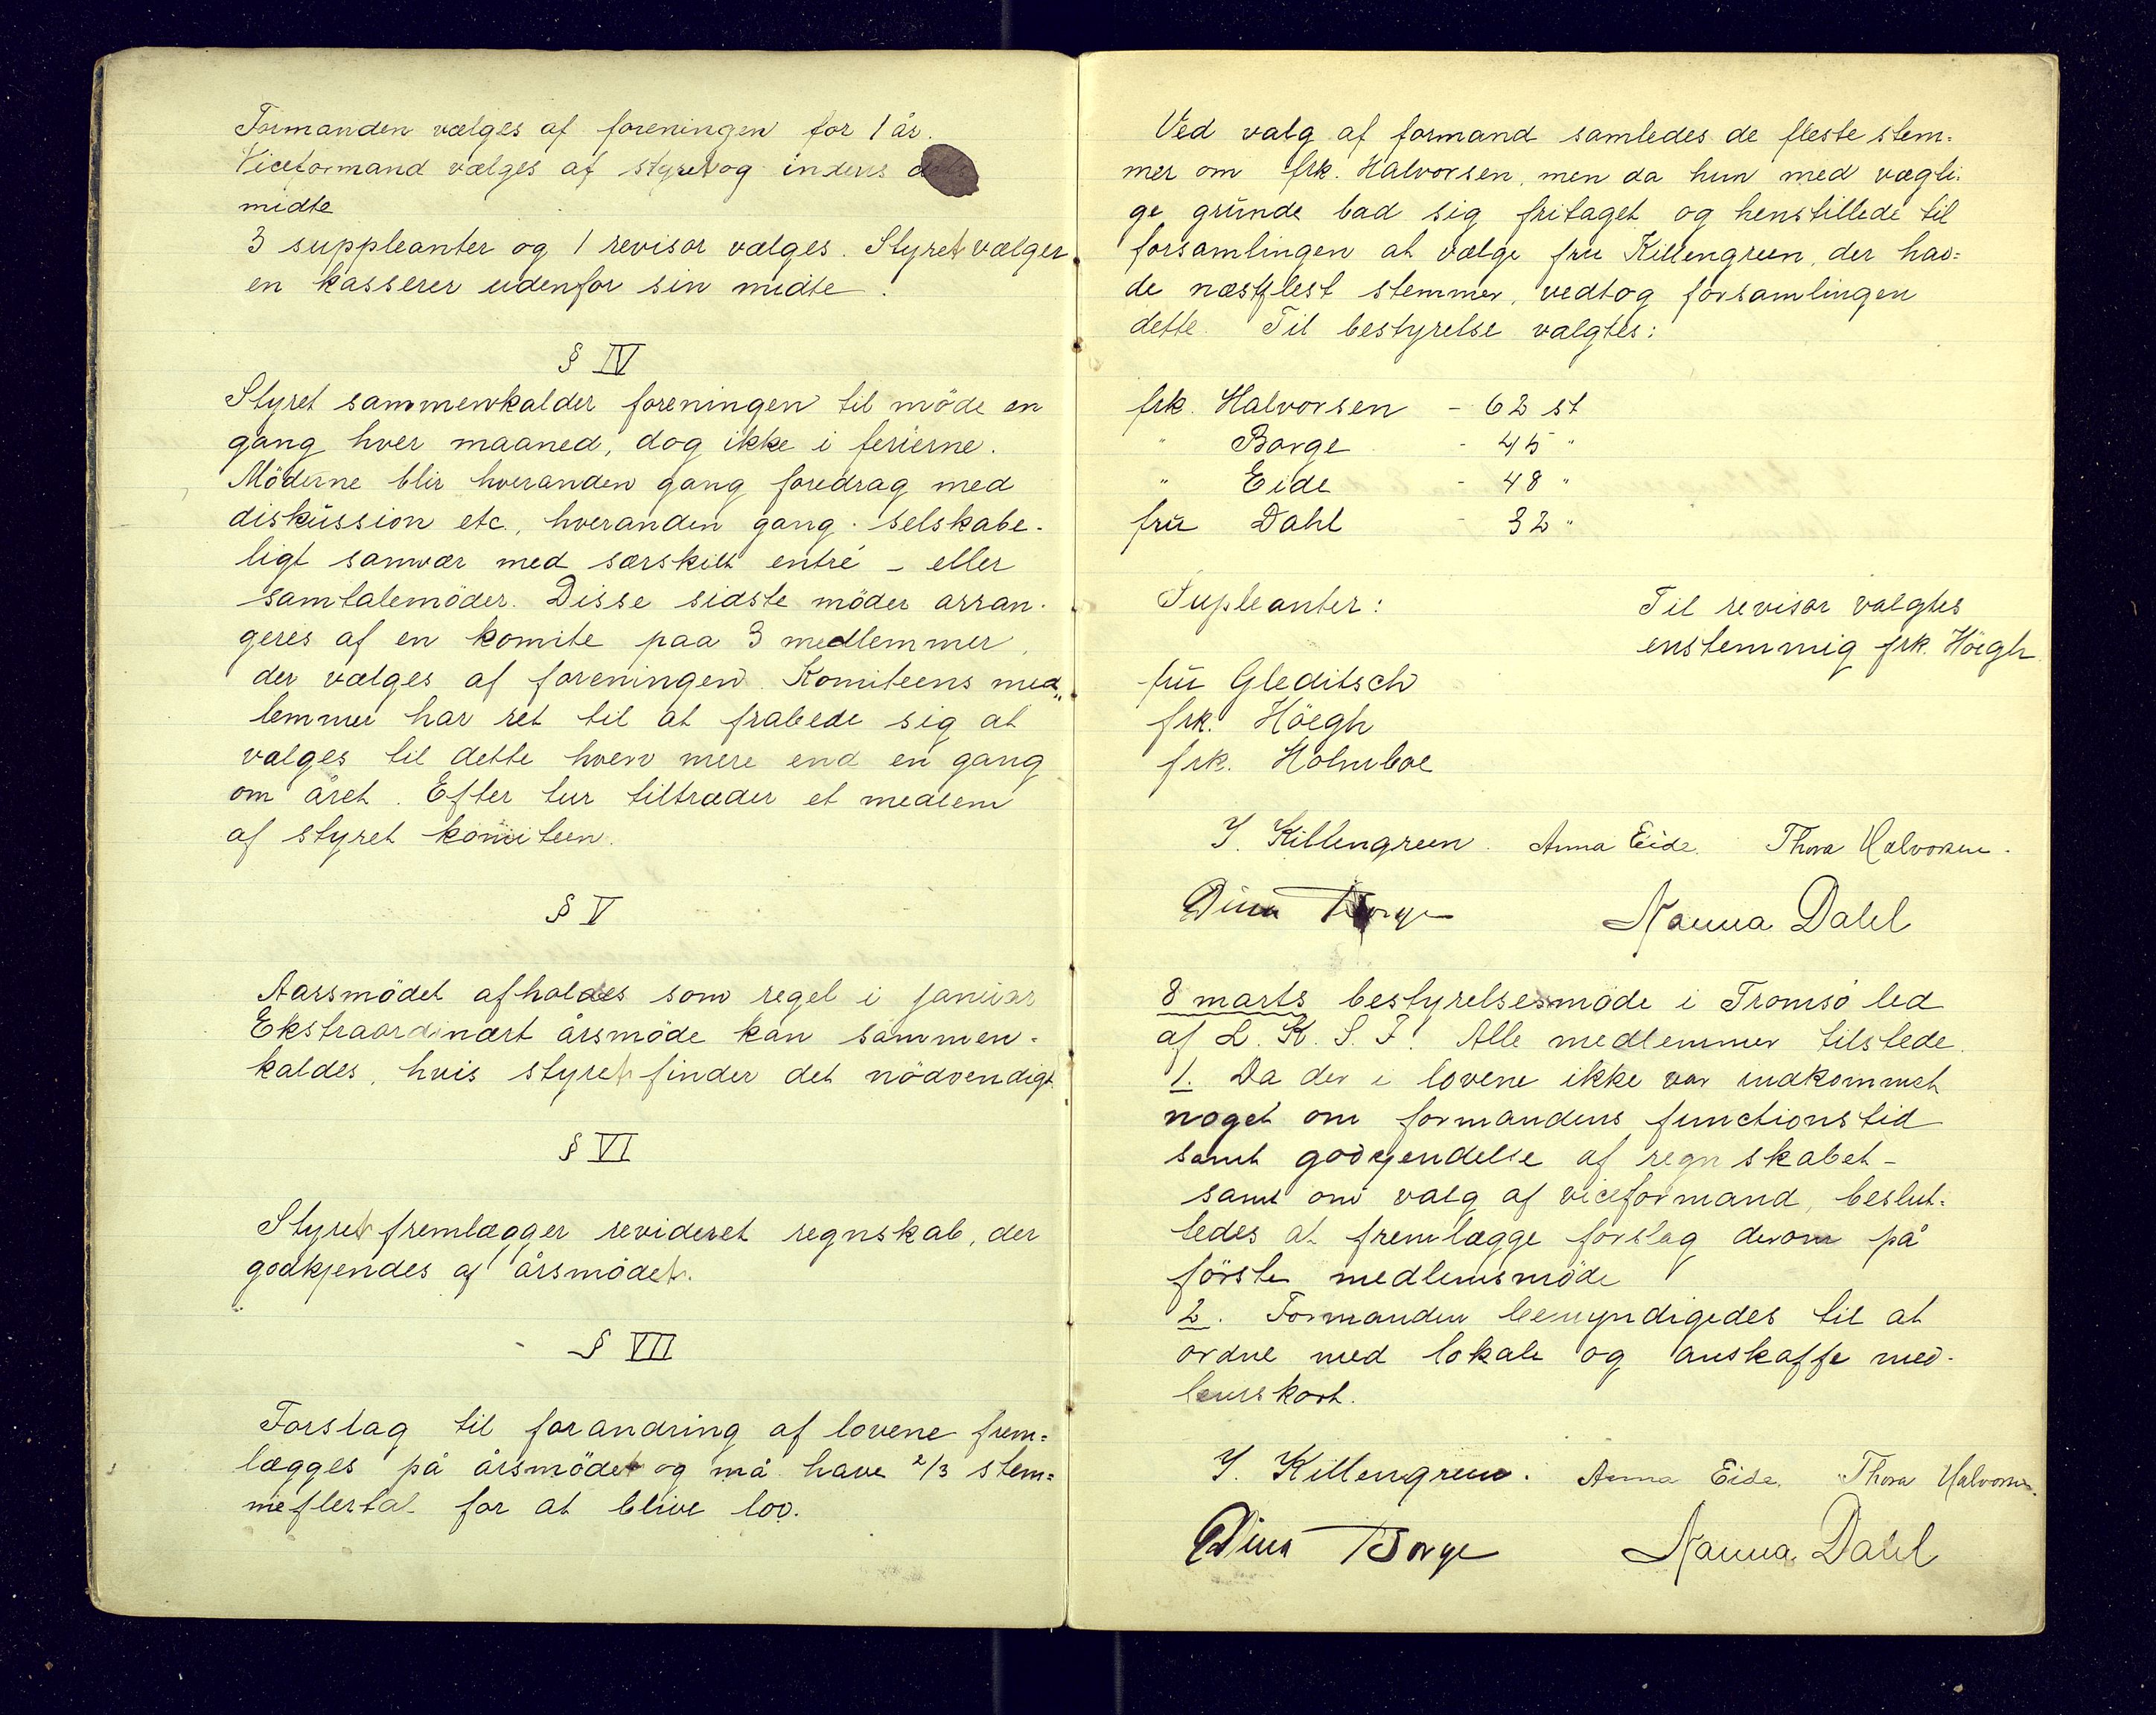 Formanden vælges af foreningen for 1 år.
Viceformand vælges af styret og indens
midte
3 suppleanter og 1 revisor vælges. Styret vælger
en kasserer udenfor sin midte.
§ IV
Styret sammenkalder foreningen til möde en
gang hver maaned, dog ikke i ferierne.
Möderne blir hveranden gang foredrag med
diskussion etc., hveranden gang selskabe-
ligt samvær med særskilt entré – eller
samtalemöder. Disse sidste möder arran-
geres af en komite paa 3 medlemmer,
der vælges af foreningen. Komiteens med„
lemmer har ret til at frabede sig at
vælges til dette hverv mere end en gang
om året. Efter tur tiltræder et medlem
af styret komiteen.
§ V
Aarsmödet afholdes som regel i januar
Ekstraordinært årsmöde kan sammen-
kaldes, hvis styret finder det nödvendigt
§ VI
Styret fremlægger revideret regnskab, der
godkjendes af årsmödet.
§ VII
Forslag til forandring af lovene frem=
lægges på årsmödet og må have 2/3 stem=
meflertal for at blive lov.
Ved valg af formand samledes de fleste stem=
mer om frk. Halvorsen, men da hun med vægti-
ge grunde bad sig fritaget og henstillede til
forsamlingen at vælge fru Killengreen, der hav=
de næstflest stemmer, vedtog forsamlingen
dette. Til bestyrelse valgtes:
frk. Halvorsen - 62 st
" Borge - 45 "
" Eide - 48 "
fru Dahl - 32 "
Supleanter:
Til revisor valgtes
enstemmig frk. Höegh
fru Gleditsch
frk. Höegh
frk. Holmboe
I. Killengreen. Anna Eide. Thora Halvorsen.
Dina Borge Nanna Dahl
8 marts bestyrelsesmöde i Tromsö led
af L. K. S. F. Alle medlemmer tilstede.
1. Da der i lovene ikke var indkommet
noget om formandens functionstid
samt godkjendelse af regnskabet –
samt om valg af viceformand, beslut-
tedes at fremlægge forslag derom på
förste medlemsmöde
2. Formanden bemyndigedes til at
ordne med lokale og anskaffe med-
lemskort.
I. Killengreen. Anna Eide. Thora Halvorsen.
Dina Borge Nanna Dahl